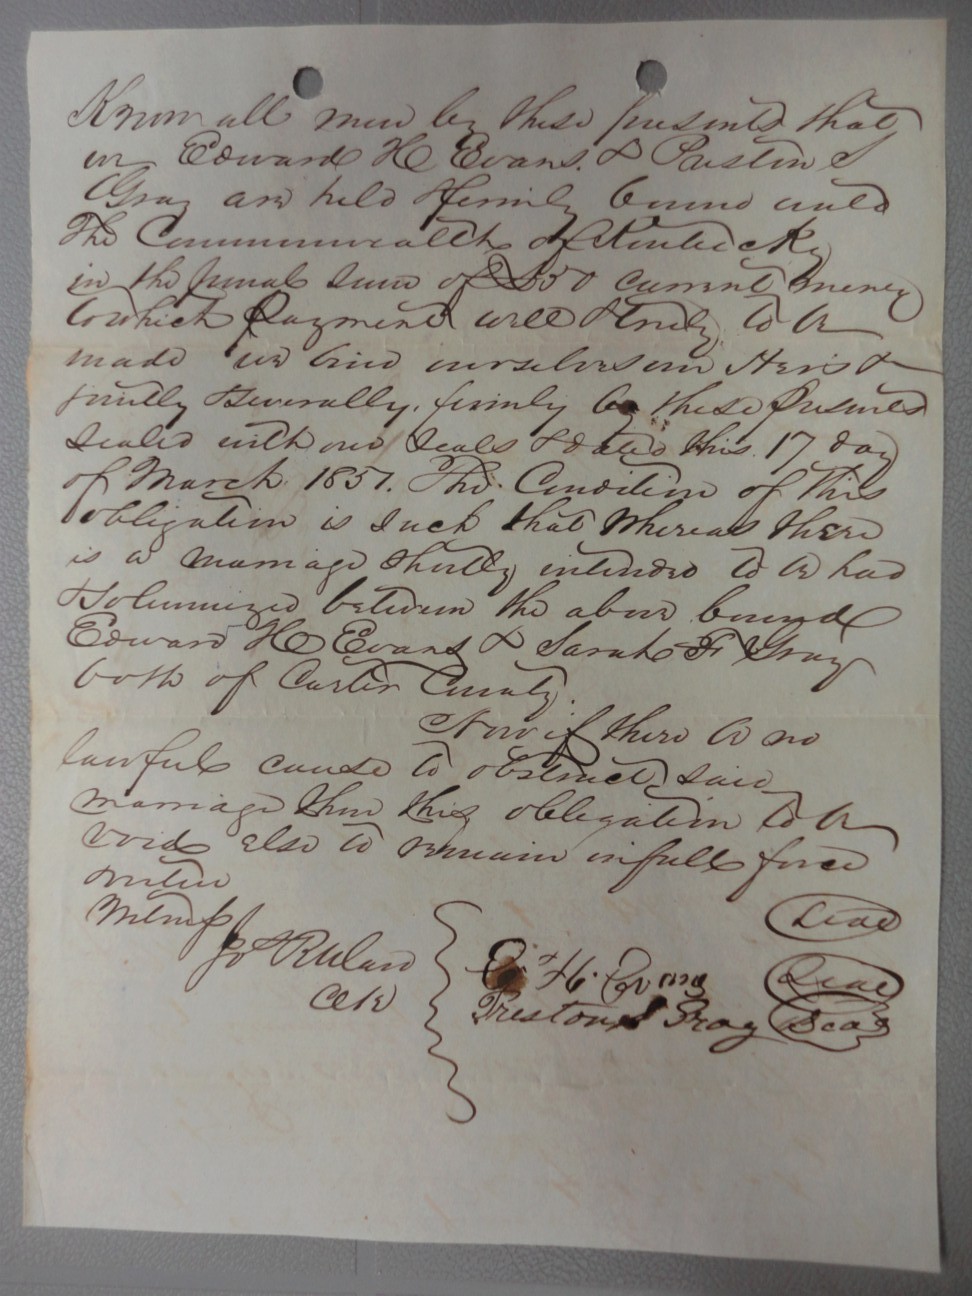 Know all men by these presents that
we Edward H Evans. & Preston S
Gray are held & firmly bound unto
The Commonwealth of Kentucky
in the penal sum of $50 current money
to which payment well & truly to be
made we bind ourselves our Heirs &
jointly & severally, firmly by these presents
sealed with our seals & dated this 17 day
of March 1857. The Condition of this
obligation is such that Whereas there
is a marriage shortly intended to be had
& solumnized between the above bound
Edward H Evans & Sarah F Gray
both of Carter County.
Now if there be no
lawful cause to obstruct said
marriage then this obligation to be
void else to remain in full force
virtue
Witness
Clk
Seal
E. H. Evans Seal
Preston S Gray Seal